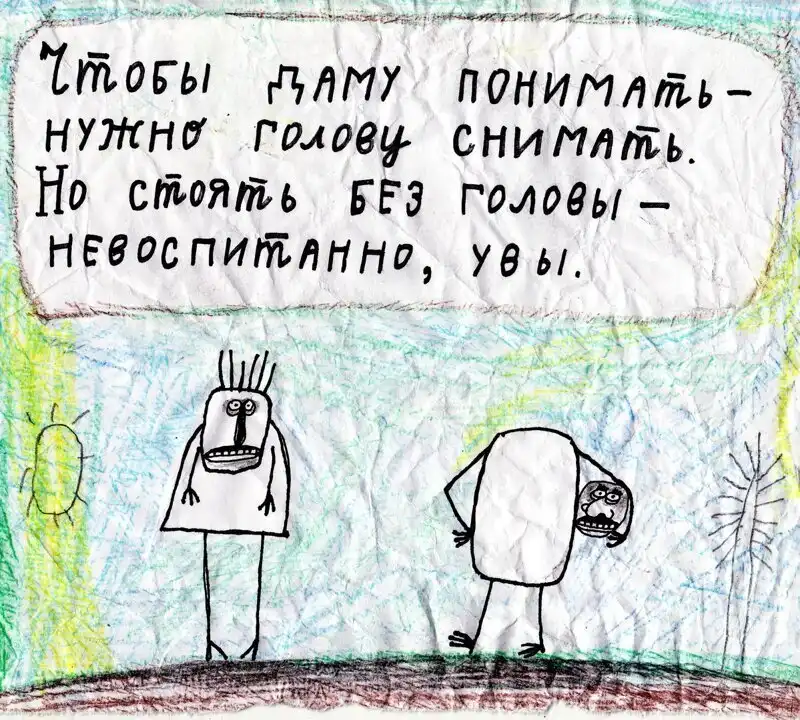 Чтобы даму понимать –
нужно голову снимать.
Но стоять без головы –
невоспитанно, увы.